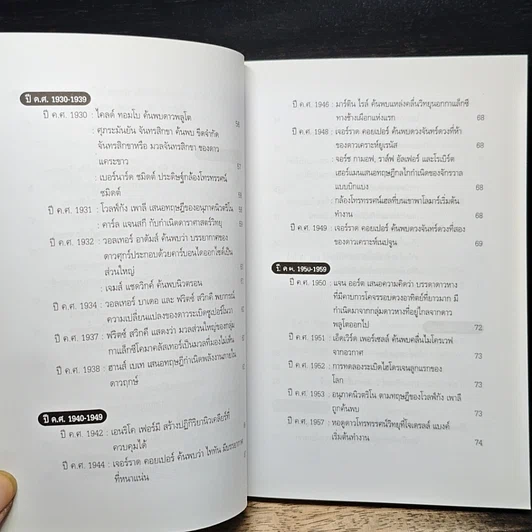 ปี ค.ศ. 1930-1939
ปี ค.ศ. 1930 : ไคลด์ ทอมโบ ค้นพบดาวพลูโต
56
: สุภระมันยัน จันทรสิกขา ค้นพบ ขีดจำกัด
จันทรสิกขาหรือ มวลจันทรสิกขา ของดาว
แคระขาว
57
: เบอร์นาร์ด ชมิดต์ ประดิษฐ์กล้องโทรทรรศน์
ชมิดต์
ปี ค.ศ. 1931 : โวลฟ์กัง เพาลี เสนอทฤษฎีของอนุภาคนิวตริโน
: คาร์ล แจนสกี กับกำเนิดดาราศาสตร์วิทยุ
ปี ค.ศ. 1932 : วอลเทอร์ อาดัมส์ ค้นพบว่า บรรยากาศของ
ดาวศุกร์ประกอบด้วยคาร์บอนไดออกไซด์เป็น
ส่วนใหญ่
: เจมส์ แชดวิกค์ ค้นพบนิวตรอน
ปี ค.ศ. 1934 : วอลเทอร์ บาเดอ และ ฟริตซ์ สวิกกี พยากรณ์
ความเปลี่ยนแปลงของการระเบิดซูเปอร์โนวา
ปี ค.ศ. 1937 : ฟริตซ์ สวิกกี แสดงว่า มวลส่วนใหญ่ของกลุ่ม
กาแล็กซีโคมาคลัสเทอร์เป็นมวลที่มองไม่เห็น
ปี ค.ศ. 1938 : ฮานส์ เบเท เสนอทฤษฎีกำเนิดพลังงานภายใน
ดาวฤกษ์
ปี ค.ศ. 1940-1949
ปี ค.ศ. 1942 : เอนริโค เฟอร์มี สร้างปฏิกิริยานิวเคลียร์ที่
ควบคุมได้
ปี ค.ศ. 1944 : เจอร์ราด คอยเปอร์ ค้นพบว่า ไททัน มีบรรยากาศ
ที่หนาแน่น
ปี ค.ศ. 1946 : มาร์ติน ไรล์ ค้นพบแหล่งคลื่นวิทยุนอกกาแล็กซี
ทางช้างเผือกแห่งแรก 68
ปี ค.ศ. 1948 : เจอร์ราด คอยเปอร์ ค้นพบดวงจันทร์ดวงที่ห้า
ของดาวเคราะห์ยูเรนัส 68
: จอร์จ กามอฟ, ราล์ฟ อัลเฟอร์ และโรเบิร์ต
เฮอร์แมนเสนอทฤษฎีกลไกกำเนิดของจักรวาล
แบบบิกแบง 68
: กล้องโทรทรรศน์เฮลที่บนเขาพาโลมาร์เริ่มต้น
ทำงาน 68
ปี ค.ศ. 1949 : เจอร์ราด คอยเปอร์ ค้นพบดวงจันทร์ดวงที่สอง
ของดาวเคราะห์เนปจูน 69
ปี ค.ศ. 1950-1959
ปี ค.ศ. 1950 : แจน ออร์ต เสนอความคิดว่า บรรดาดาวหาง
ที่มีคาบการโคจรรอบดวงอาทิตย์ที่ยาวมาก มี
กำเนิดมาจากกลุ่มดาวหางที่อยู่ไกลจากดาว
พลูโตออกไป 72
ปี ค.ศ. 1951 : เอ็ดเวิร์ด เพอร์เซลล์ ค้นพบคลื่นไมโครเวฟ
จากอวกาศ 73
ปี ค.ศ. 1952 : การทดลองระเบิดไฮโดรเจนลูกแรกของ
โลก 73
ปี ค.ศ. 1953 : อนุภาคนิวตริโน ตามทฤษฎีของโวลฟ์กัง เพาลี
ถูกค้นพบ 73
ปี ค.ศ. 1957 : หอดูดาวโทรทรรศน์วิทยุที่โจเดรลล์ แบงค์
เริ่มต้นทำงาน 74